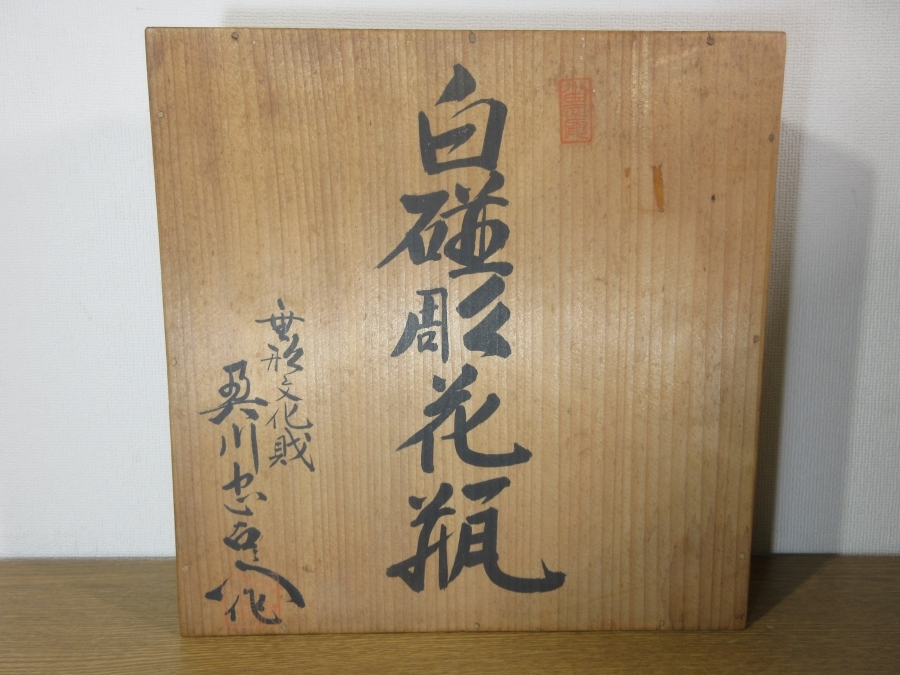 白碰彫花瓶
無形文化財
奥川忠右エ門作